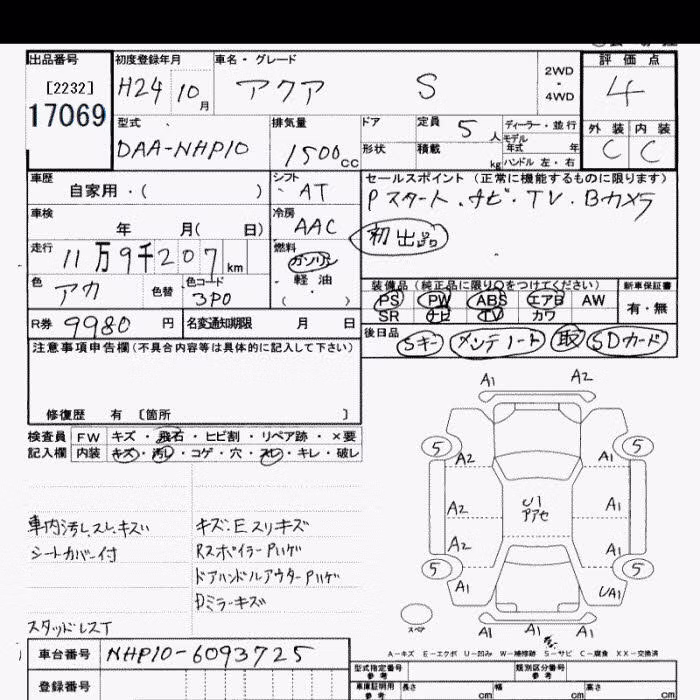 出品番号 初度登録年月 車名・グレード 2WD ・ 4WD 評価点
[2232] H24 10月 アクア S 4
17069
型式 排気量 ドア 定員 5人 ディーラー・並行 外装 内装
DAA-NHP10 1500cc 形状 積載 kg モデル年式 年 C C
ハンドル 左・右
車歴 シフト セールスポイント(正常に機能するものに限ります)
自家用・( ) AT Pスタート.ナビ・TV.Bカメラ
車検 冷房 初出品
年 月( 日) AAC
走行 燃料
11万9千207km ガソリン
軽油
色 色替 色コード ・ 装備品(純正品に限り○をつけてください) 新車保証書
アカ 3P0 ( ) PS PW ABS エアB AW 有・無
SR ナビ TV カワ
R券 9980円 名変通知期限 月 日 後日品 Sキー メンテノート 取 SDカード
注意事項申告欄(不具合内容等は具体的に記入して下さい)
修復歴 有 [箇所 ]
検査員 FW キズ・飛石・ヒビ割・リペア跡・×要
記入欄 内装 キズ・汚レ・コゲ・穴・スレ・キレ・破レ
A1 A2
5 5
A2 A1
A2 U1 A1
アアセ
A2 A1
5 5
A1 UA1
A1 A1 A1
スペア
車内汚レ.スレ.キズ キズ.Eスリキズ
シートカバー付 Rスポイラーハゲ
ドアハンドルアウターハゲ
Dミラーキズ
スタッドレスT
A-キズ E-エクボ U-凹み W-補修跡 S-サビ C-腐食 XX-交換済
車台番号 NHP10-6093725 型式指定番号 参考 類別区分番号 参考
登録番号 車庫証明用 参考 長さ cm 幅 cm 高さ cm